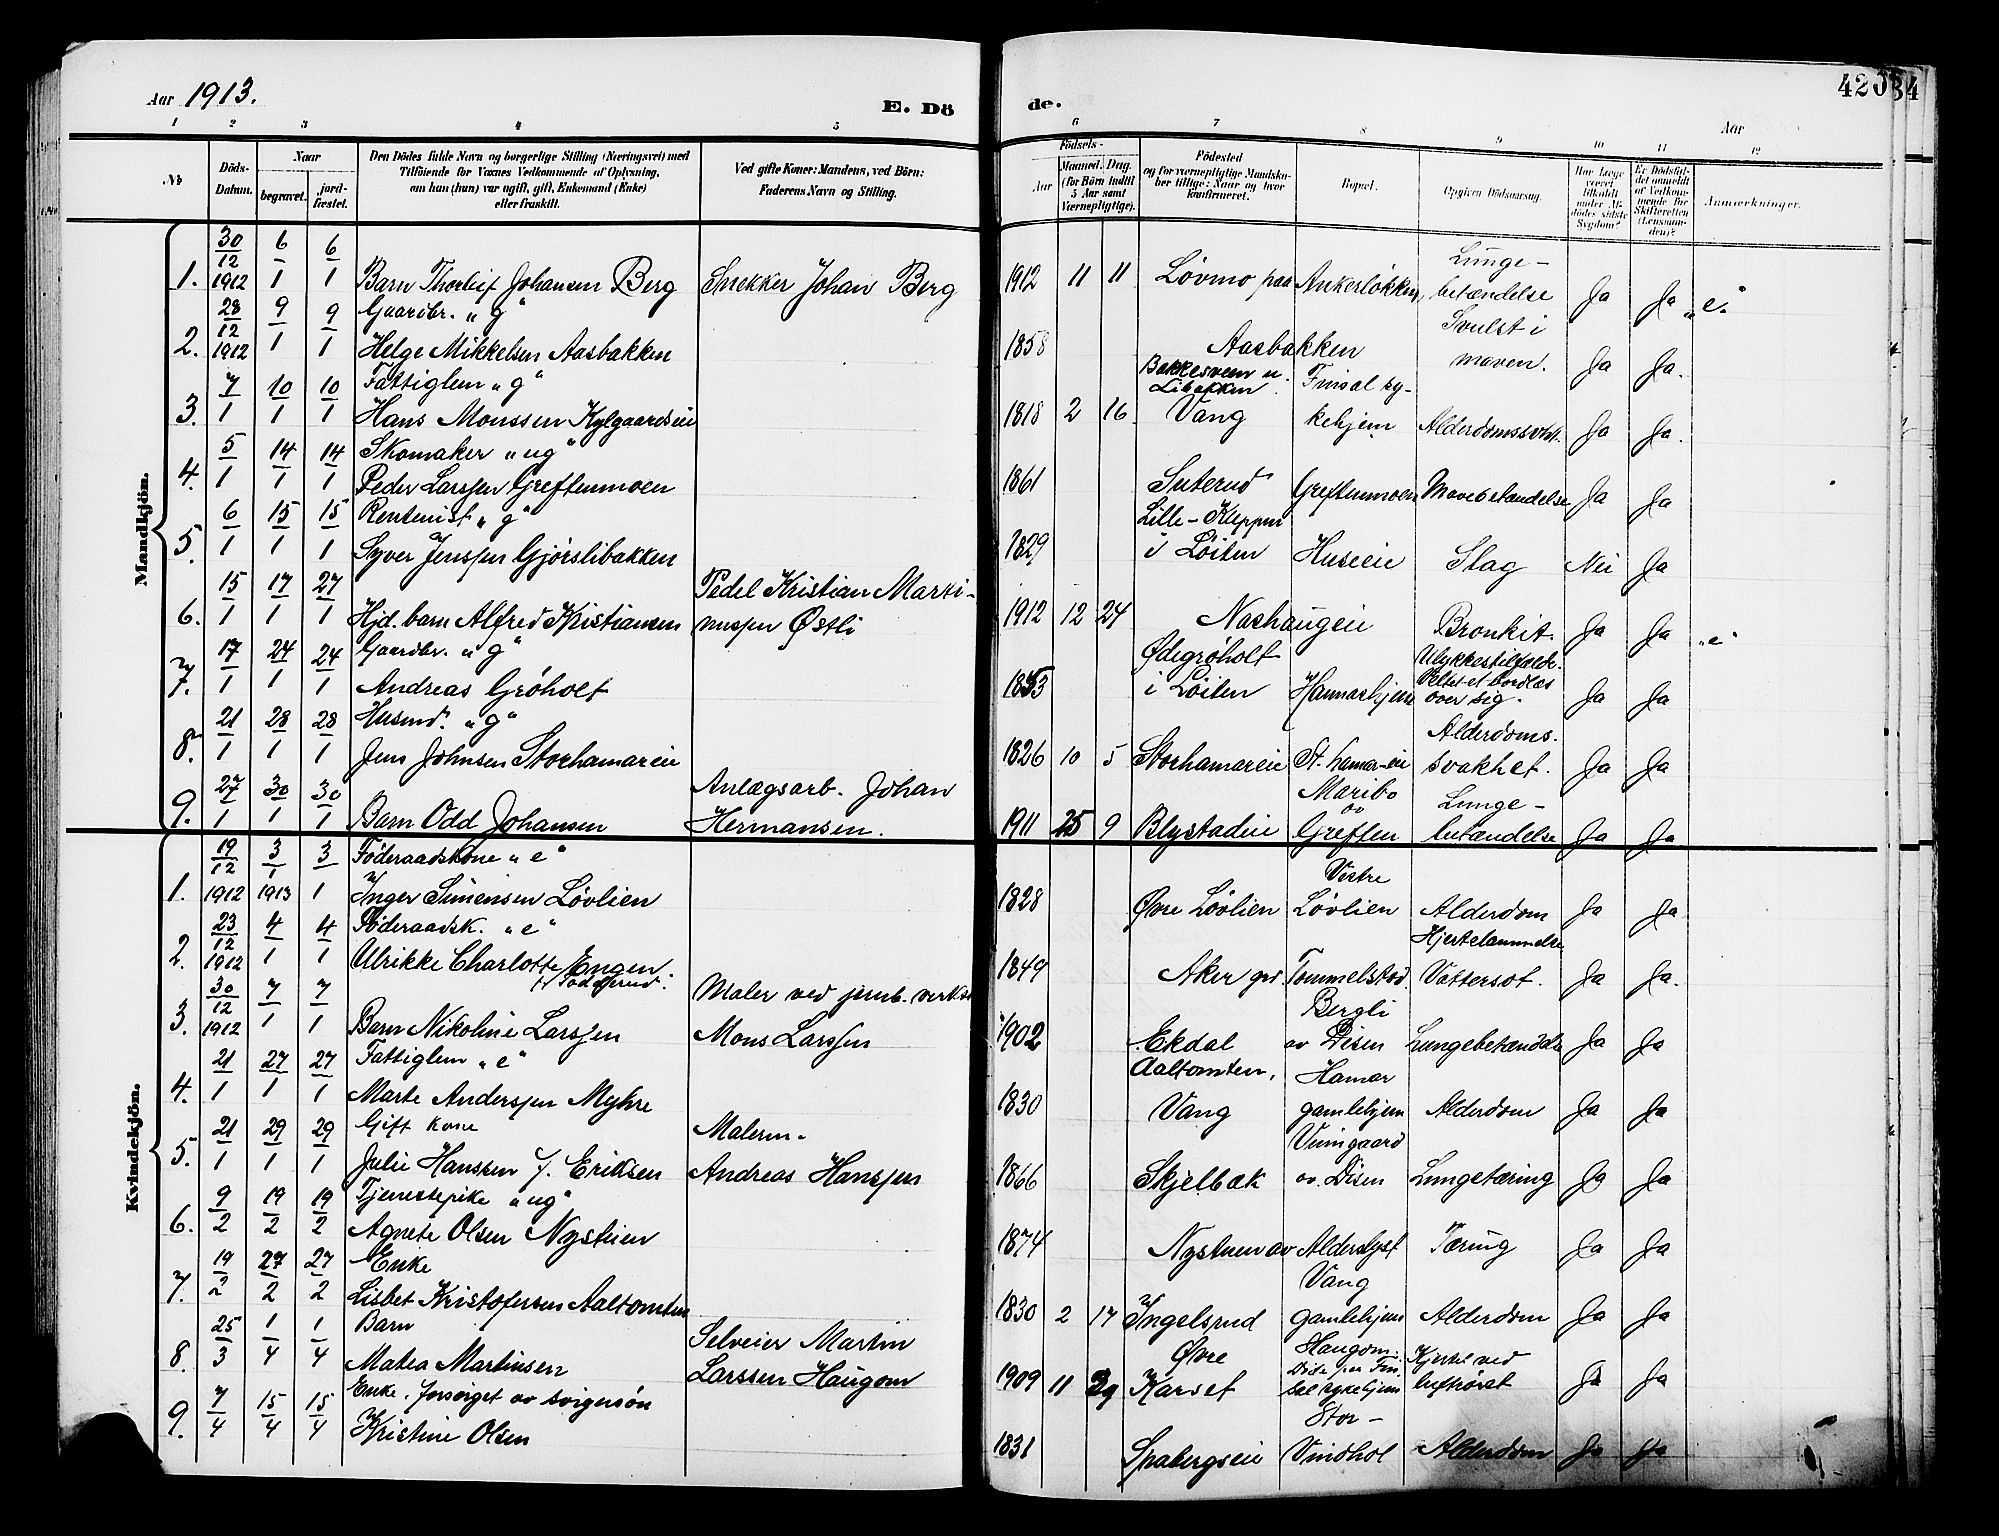 Aar 1913.
E. Dö
de.
420
34
1 2 3 4 5
6 7 8 9 10 11 12
Aar
№
Döds-Datum.
Naar
begravet.
jord-fæstet.
Den Dödes fulde Navn og borgerlige Stilling (Næringsvei) med
Tilföiende for Voxnes Vedkommende af Oplysning,
om han (hun) var ugift, gift, Enkemand (Enke)
eller fraskilt.
Ved gifte Koner: Mandens, ved Börn:
Faderens Navn og Stilling.
Födsels-
Aar
Maaned. Dag.
(for Börn indtil
5 Aar samt
Værnepligtige).
Födested
og for værnepligtige Mandska-
ber tillige: Naar og hvor
konfirmeret.
Bopæl.
Opgiven Dödsaarsag.
Har Læge
været
tilkaldt
under Af-
dödes sidste
Sygdom?
Er Dödsfal-
det anmeldt
af Vedkom-
mende for
Skifteretten
(Lensman-
den)?
Anmærkninger.
Mandkjön.
1. 30/12 1912 6/1 6/1 Barn Thorleif Johansen Berg Snekker Johan Berg 1912 11 11 Løvmo paa Ankerløkken, Lunge-betændelse Ja Ja "e."
2. 28/12 1912 9/1 9/1 Gaardbr. "g"
Helge Mikkelsen Aasbakken 1858 Aasbakken Svulst i maven. Ja Ja.
3. 7/1 10/1 10/1 Fattiglem "g"
Hans Monssen Kylgaardseie 1818 2 16 Vang Finsal sy-kehjem Alderdomssvbh. Ja Ja.
4. 5/1 14/1 14/1 Skomaker "ug"
Peder Larssen Greftenmoen 1861 Suterud Greftenmoen Mavebetændelse Ja Ja
5. 6/1 15/1 15/1 Rentenist "g"
Syver Jenssen Gjørslibakken 1829 Lille-Kleppen i Løiten Huseie Slag Nei Ja
6. 15/1 17/1 27/1 Hjd. barn Alfred Kristiansen Pedel Kristian Marti-nussen Østli 1912 12 24 Nashaugeie Bronkit. Ja Ja "e"
7. 17/1 24/1 24/1 Gaardbr. "g"
Andreas Grøholt 1853 Ødegrøholt i Løiten Hammarhjem Ulykkestilfælde. Veltet et bordlas over sig. Ja Ja
8. 21/1 28/1 28/1 Husmd. "g"
Jens Johnsen Storhamareie 1826 10 5 Storhamareie St. hamar-eie Alderdoms-svakhet. Ja Ja
9. 27/1 30/1 30/1 Barn Odd Johansen Anlægsarb. Johan Hermansen. 1911 25 9 Blystadeie Maribo av Greften Lunge-betændelse Ja Ja
Kvindekjön.
1. 19/12 1912 3/1 1913 3/1 Føderaadskone "e"
Inger Simensen Løvlien 1828 Øvre Løvlien Vestre Løvlien Alderdom Ja Ja
2. 23/12 1912 4/1 4/1 Føderaadsk. "e"
Ulrikke Charlotte Engen 1849 Aker prs Tommelstad Hjertelammelse Vattersot. Ja Ja.
3. 30/12 1912 7/1 7/1 Barn Nikoline Larssen Maler ved jernb. verkst. Mons Larssen 1902 Ekdal Bergli av Disen Lungebetændelse Ja Ja
4. 21/1 27/1 27/1 Fattiglem "e"
Marte Anderssen Myhre 1830 Aaltomten, Vang Hamar gamlehjem Alderdom Ja Ja
5. 21/1 29/1 29/1 Gift kone
Julie Hanssen f. Eriksen Malerm. Andreas Hanssen 1866 Skjelbæk Viengaard av. Disen Lungetæring Ja Ja
6. 9/2 19/2 19/2 Tjenestepike "ug"
Agnete Olsen Nystuen 1874 Nystuen av Alderslyst Tæring Ja Ja
7. 19/2 27/2 27/2 Enke
Lisbet Kristofersen Aaltomten 1830 2 17 Ingelsrud Vang gamlehjem Alderdom Ja Ja
8. 25/3 1/4 1/4 Barn
Matea Martinsen Selveier Martin Larssen Haugom 1909 11 29 Øvre Karset Haugom. Døde paa Fin-sal sykehjem Kjertel ved luftrøret Ja Ja
9. 7/4 15/4 15/4 Enke, forsørget av svigersøn
Kristine Olsen 1831 Spabergseie Stor-Vindhol Alderdom Ja Ja